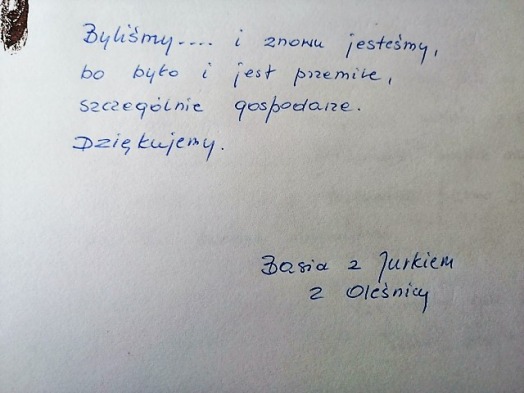 Byliśmy.... i znowu jesteśmy,
bo było i jest przemiłe,
szczególnie gospodarze.
Dziękujemy.
Basia z Jurkiem
z Oleśnicy